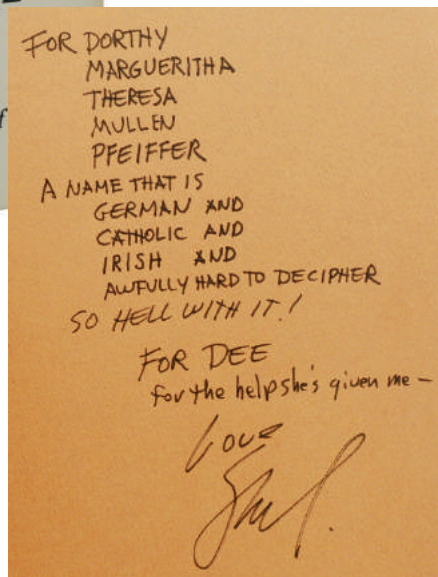 FOR DORTHY
MARGUERITHA
THERESA
MULLEN
PFEIFFER
A NAME THAT IS
GERMAN AND
CATHOLIC AND
IRISH AND
AWFULLY HARD TO DECIPHER
SO HELL WITH IT!
FOR DEE
for the help she's given me—
Love